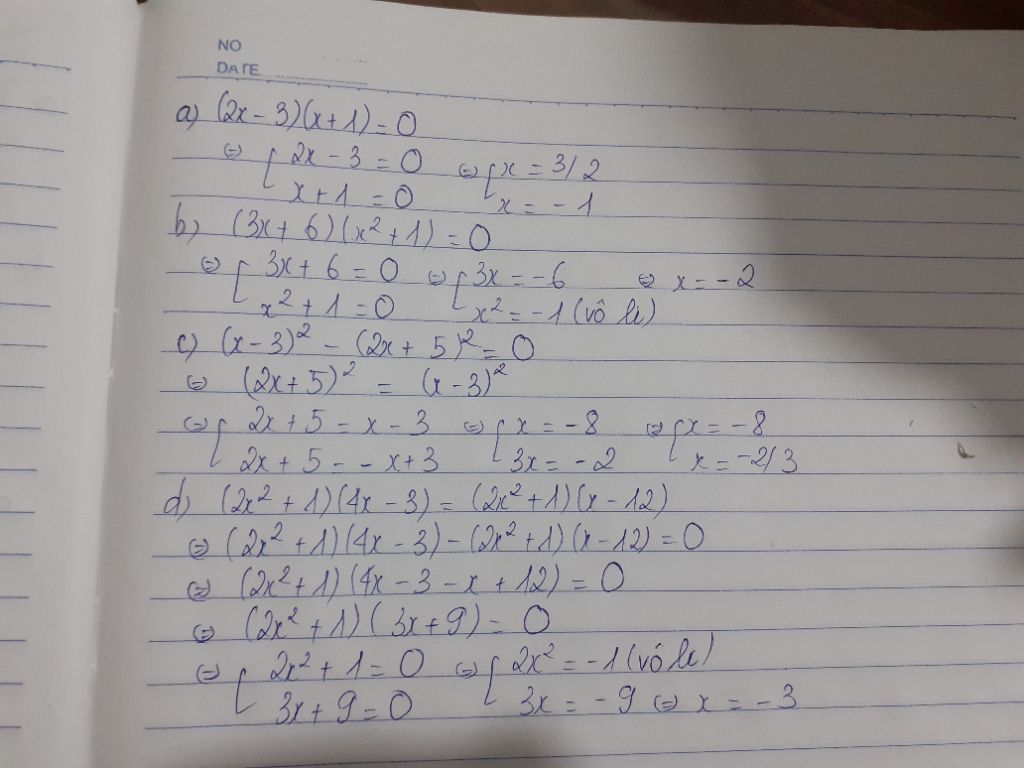 NO
DATE
a) (2x - 3)(x + 1) = 0
⇔ [ 2x - 3 = 0 ⇔ [ x = 3/2
x + 1 = 0 x = -1
b) (3x + 6)(x² + 1) = 0
⇔ [ 3x + 6 = 0 ⇔ [ 3x = -6 ⇔ x = -2
x² + 1 = 0 x² = -1 (vô lí)
c) (x - 3)² - (2x + 5)² = 0
⇔ (2x + 5)² = (x - 3)²
⇔ [ 2x + 5 = x - 3 ⇔ [ x = -8 ⇔ [ x = -8
2x + 5 = -x + 3 3x = -2 x = -2/3
d) (2x² + 1)(4x - 3) = (2x² + 1)(x - 12)
⇔ (2x² + 1)(4x - 3) - (2x² + 1)(x - 12) = 0
⇔ (2x² + 1)(4x - 3 - x + 12) = 0
⇔ (2x² + 1)(3x + 9) = 0
⇔ [ 2x² + 1 = 0 ⇔ [ 2x² = -1 (vô lí)
3x + 9 = 0 3x = -9 ⇔ x = -3